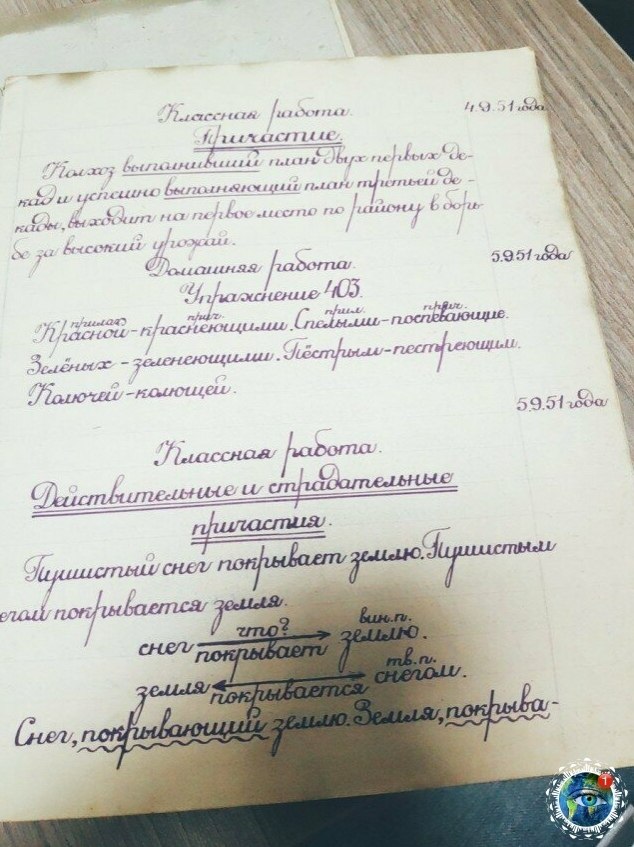 4.9.51 года
Классная работа.
Причастие.
Колхоз выполнивший план двух первых де-
кад и успешно выполняющий план третьей де-
кады, выходит на первое место по району в борь-
бе за высокий урожай.
5.9.51 года
Домашняя работа.
Упражнение 403.
прилаг. прич. прил. прич.
Красной-краснеющими. Спелыми-поспевающие.
Зелёных-зеленеющими. Пёстрым-пестреющим.
Колючей-колющей.
5.9.51 года
Классная работа.
Действительные и страдательные
причастия.
Пушистый снег покрывает землю. Пушистым
егом покрывается земля.
что? вин.п.
снег покрывает землю.
тв.п.
земля покрывается снегом.
Снег, покрывающий землю. Земля, покрыва-
1